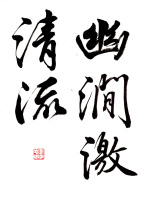 幽澗激
清流